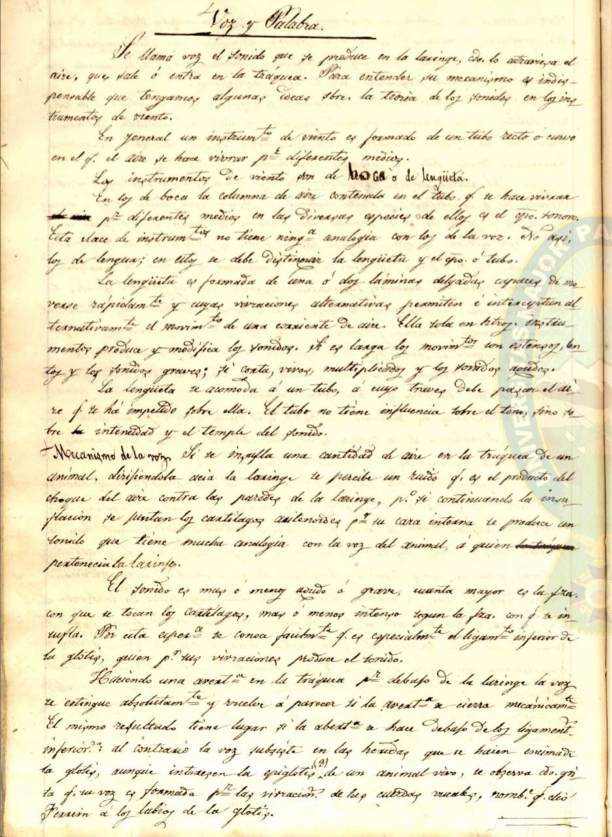 Voz y Palabra.
Se llama voz el sonido que se produce en la laringe, cdo. lo atraviesa el
aire, que sale ó entra en la tráquea. Para entender su mecanismo es indis-
pensable que tengamos algunas ideas sbre. la teoria de los sonidos en los ins
trumentos de viento.
En general un instrumto. de viento es formado de un tubo recto ó curvo
en el q. el aire se hace vivrar pr. diferentes medios.
Los instrumentos de viento son de boca o de lengüeta.
En los de boca la columna de aire contenida en el tubo, q. se hace vivrar
pr. diferentes medios en las diversas especies de ellos es el cpo. sonoro.
Esta clace de instrumtos no tiene ninga. analogia con los de la voz. No asi,
los de lengua; en estos se debe distinguir la lengüeta y el cpo. ó tubo.
La lengüeta es formada de una ó dos láminas delgadas capaces de mo-
verse rápidamte. y cuyas vivraciones alternativas permiten é interceptan al
ternativamte. el movimto. de una corriente de aire. Ella sola en instru-
mentos produce y modifica los sonidos. Si es larga los movimtos son estensos, len
tos y los sonidos graves; si corta, vivos, multiplicados y los sonidos agudos.
La lengüeta se acomoda á un tubo, á cuyo traves debe pasar el ai-
re q. se há impelido sobre ella. El tubo no tiene influencia sobre el tono, sino so-
bre la intencidad y el temple del sonido.
Mecanismo de la voz. Si se insufla una cantidad de aire en la tráquea de un
animal, dirijiéndola ácia la laringe se percibe un ruido q. es el producto del
choque del aire contra las paredes de la laringe, po. si continuando la insu-
flacion se juntan los cartilagos aritenoides pr. su cara interna se produce un
sonido que tiene mucha analogia con la voz del animal, á quien
pertenecia la larinje.
El sonido es mas ó menos agudo ó grave, cuanta mayor es la fza.
con que se tocan los cartílagos, mas ó menos intenso segun la fza. con q. se in-
sufla. Por esta espera. se conoce q. es especialmte. el ligamto. inferior de
la glotis, quien pr. sus vivraciones produce el sonido.
Haciendo una averta. en la tráquea pr. debajo de la laringe la voz
se estingue absolutamte. y vuelve á parecer si la averta. se cierra mecánicamte.
El mismo resultado tiene lugar si la aberta. se hace debajo de los ligament.
inferiors.: al contrario la voz subsiste en las heridas que se hacen encima de
la glotis, aunque interesen la epiglotis (2) de un animal vivo, se observa cdo. gri
ta q. su voz es formada pr. las vivracion. de las cuerdas vocales, nomb. q. dió
Ferrein á los labios de la glotis.